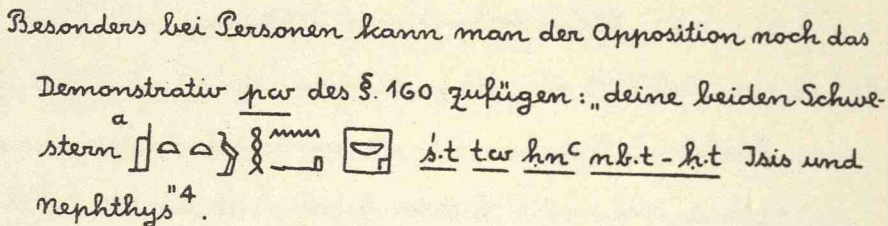 Besonders bei Personen kann man der Apposition noch das
Demonstrativ pw des §. 160 zufügen: „deine beiden Schwe-
stern ᵃ 𓊨𓏏𓏏𓅱𓎛𓈖𓂝 𓉠 ś.t tw ḥnᶜ nb.t - ḥ.t Isis und
Nephthys"⁴.